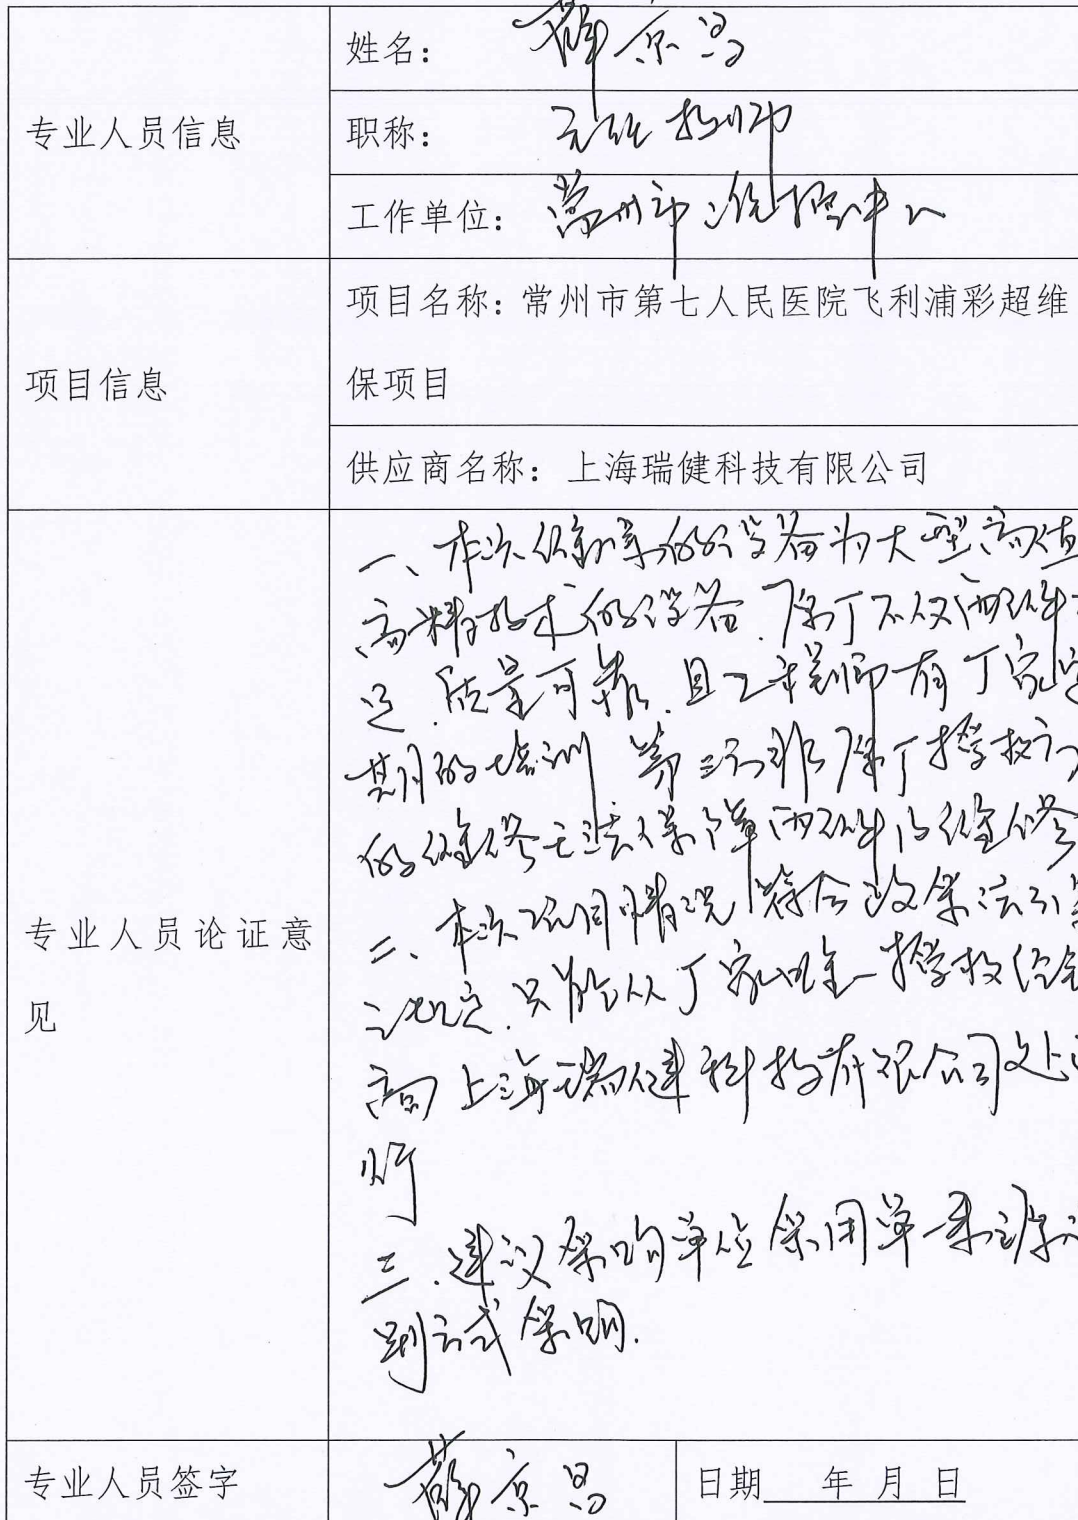 专业人员信息
姓名： 薛京昌
职称： 主任技师
工作单位： 常州市中心
项目信息
项目名称：常州市第七人民医院飞利浦彩超维
保项目
供应商名称：上海瑞健科技有限公司
专业人员论证意
见
一、本次维保的设备为大型高值
高科技术的设备.原厂不仅配件
足.质量可靠.且工程师有厂家定
期的培训 第三方非原厂授权
的维修无法保障配件的维修
二、本次采购情况符合政采法
之规定.只能从厂家唯一授权经销
商上海瑞健科技有限公司处
购
三.建议采购单位采用单一来源
方式采购.
专业人员签字
薛京昌
日期 年 月 日